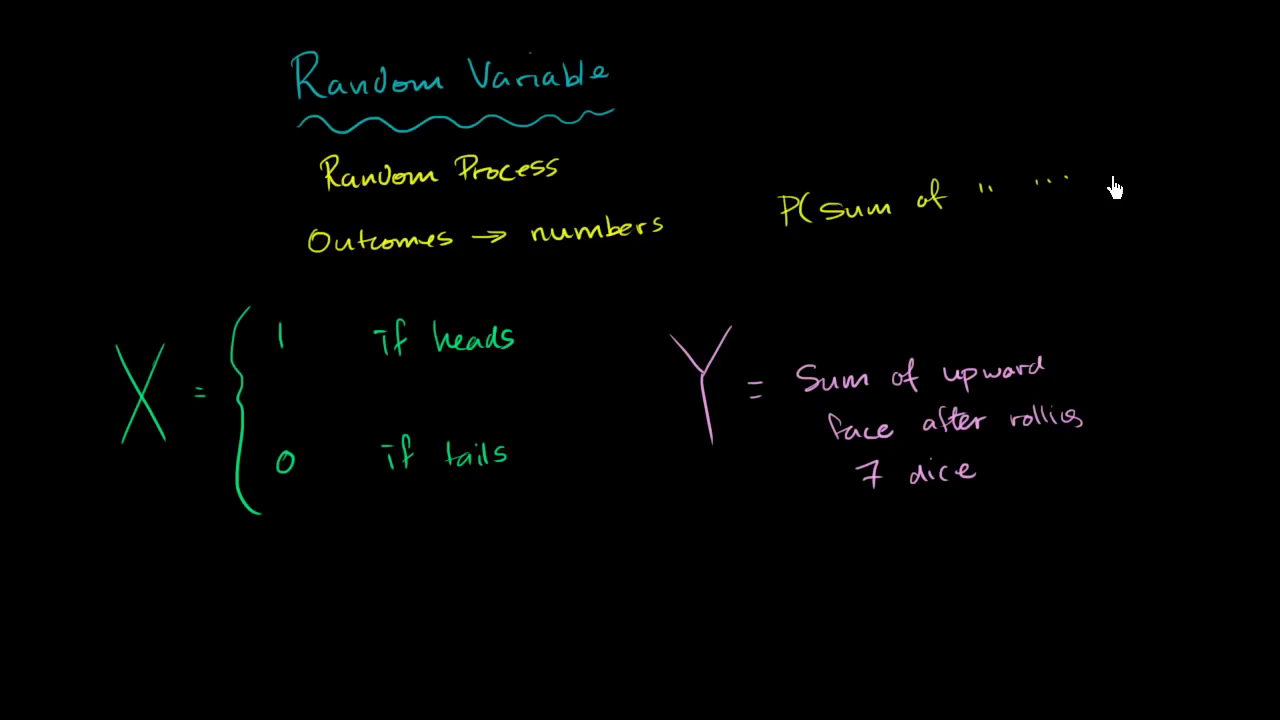 Random Variable
Random Process
Outcomes → numbers
P(sum of " ...
X = { 1 if heads
0 if tails
Y = Sum of upward
face after rolling
7 dice